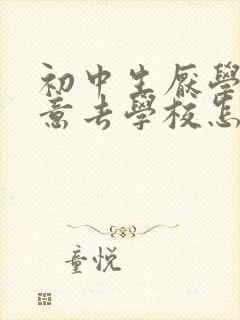 初中生厌學
意去學校怎
童悦